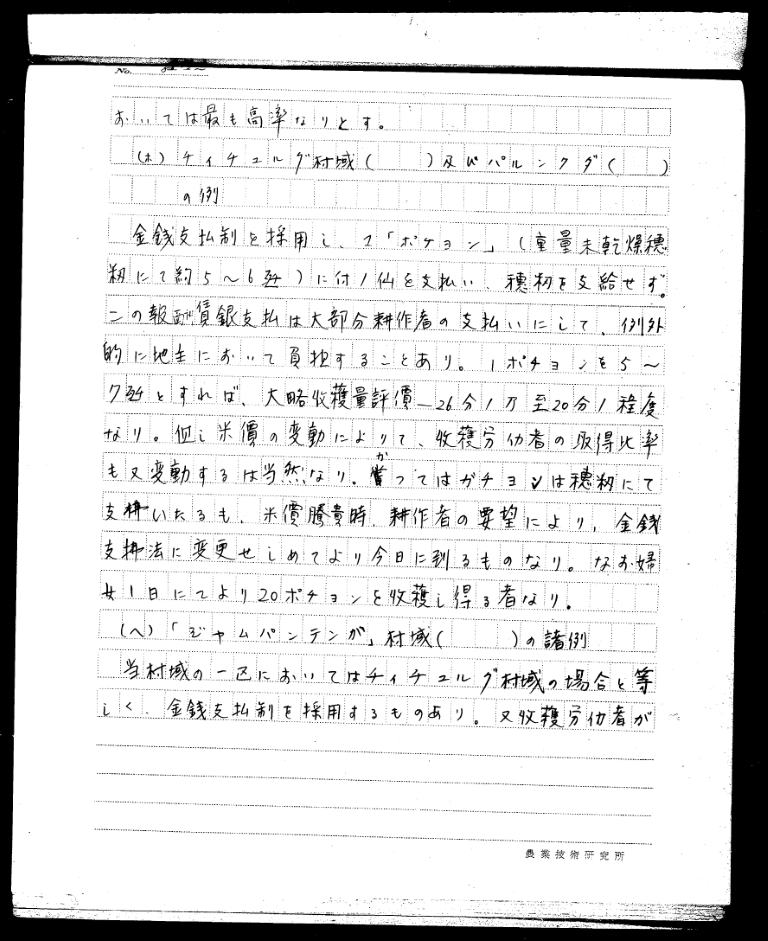 No.
おいては最も高率なりとす。
(ホ) チィチュルグ村域(　　)及びパルンクダ(　　)
の例
金銭支払制を採用し、1「ポチョン」(重量未乾燥穂
籾にて約5〜6瓩)に付1仙を支払い、穂籾を支給せず。
この報酬賃銀支払は大部分耕作者の支払いにして、例外
的に地主において負担することあり。1ポチョンを5〜
7瓩とすれば、大略收穫量評價—26分1乃至20分1程度
なり。但し米價の変動によりて、收穫労仂者の取得比率
も又変動するは当然なり。嘗つてはガチョンは穂籾にて
か
支拂いたるも、米價騰貴時、耕作者の要望により、金銭
支拂法に変更せしめてより今日に到るものなり。なお婦
女1日にてより20ポチョンを收穫し得る者なり。
(ヘ)「ジャムパンテンガ」村域(　　)の諸例
当村域の一区においてはチィチュルグ村域の場合と等
しく、金銭支払制を採用するものあり。又收穫労仂者が
農業技術研究所